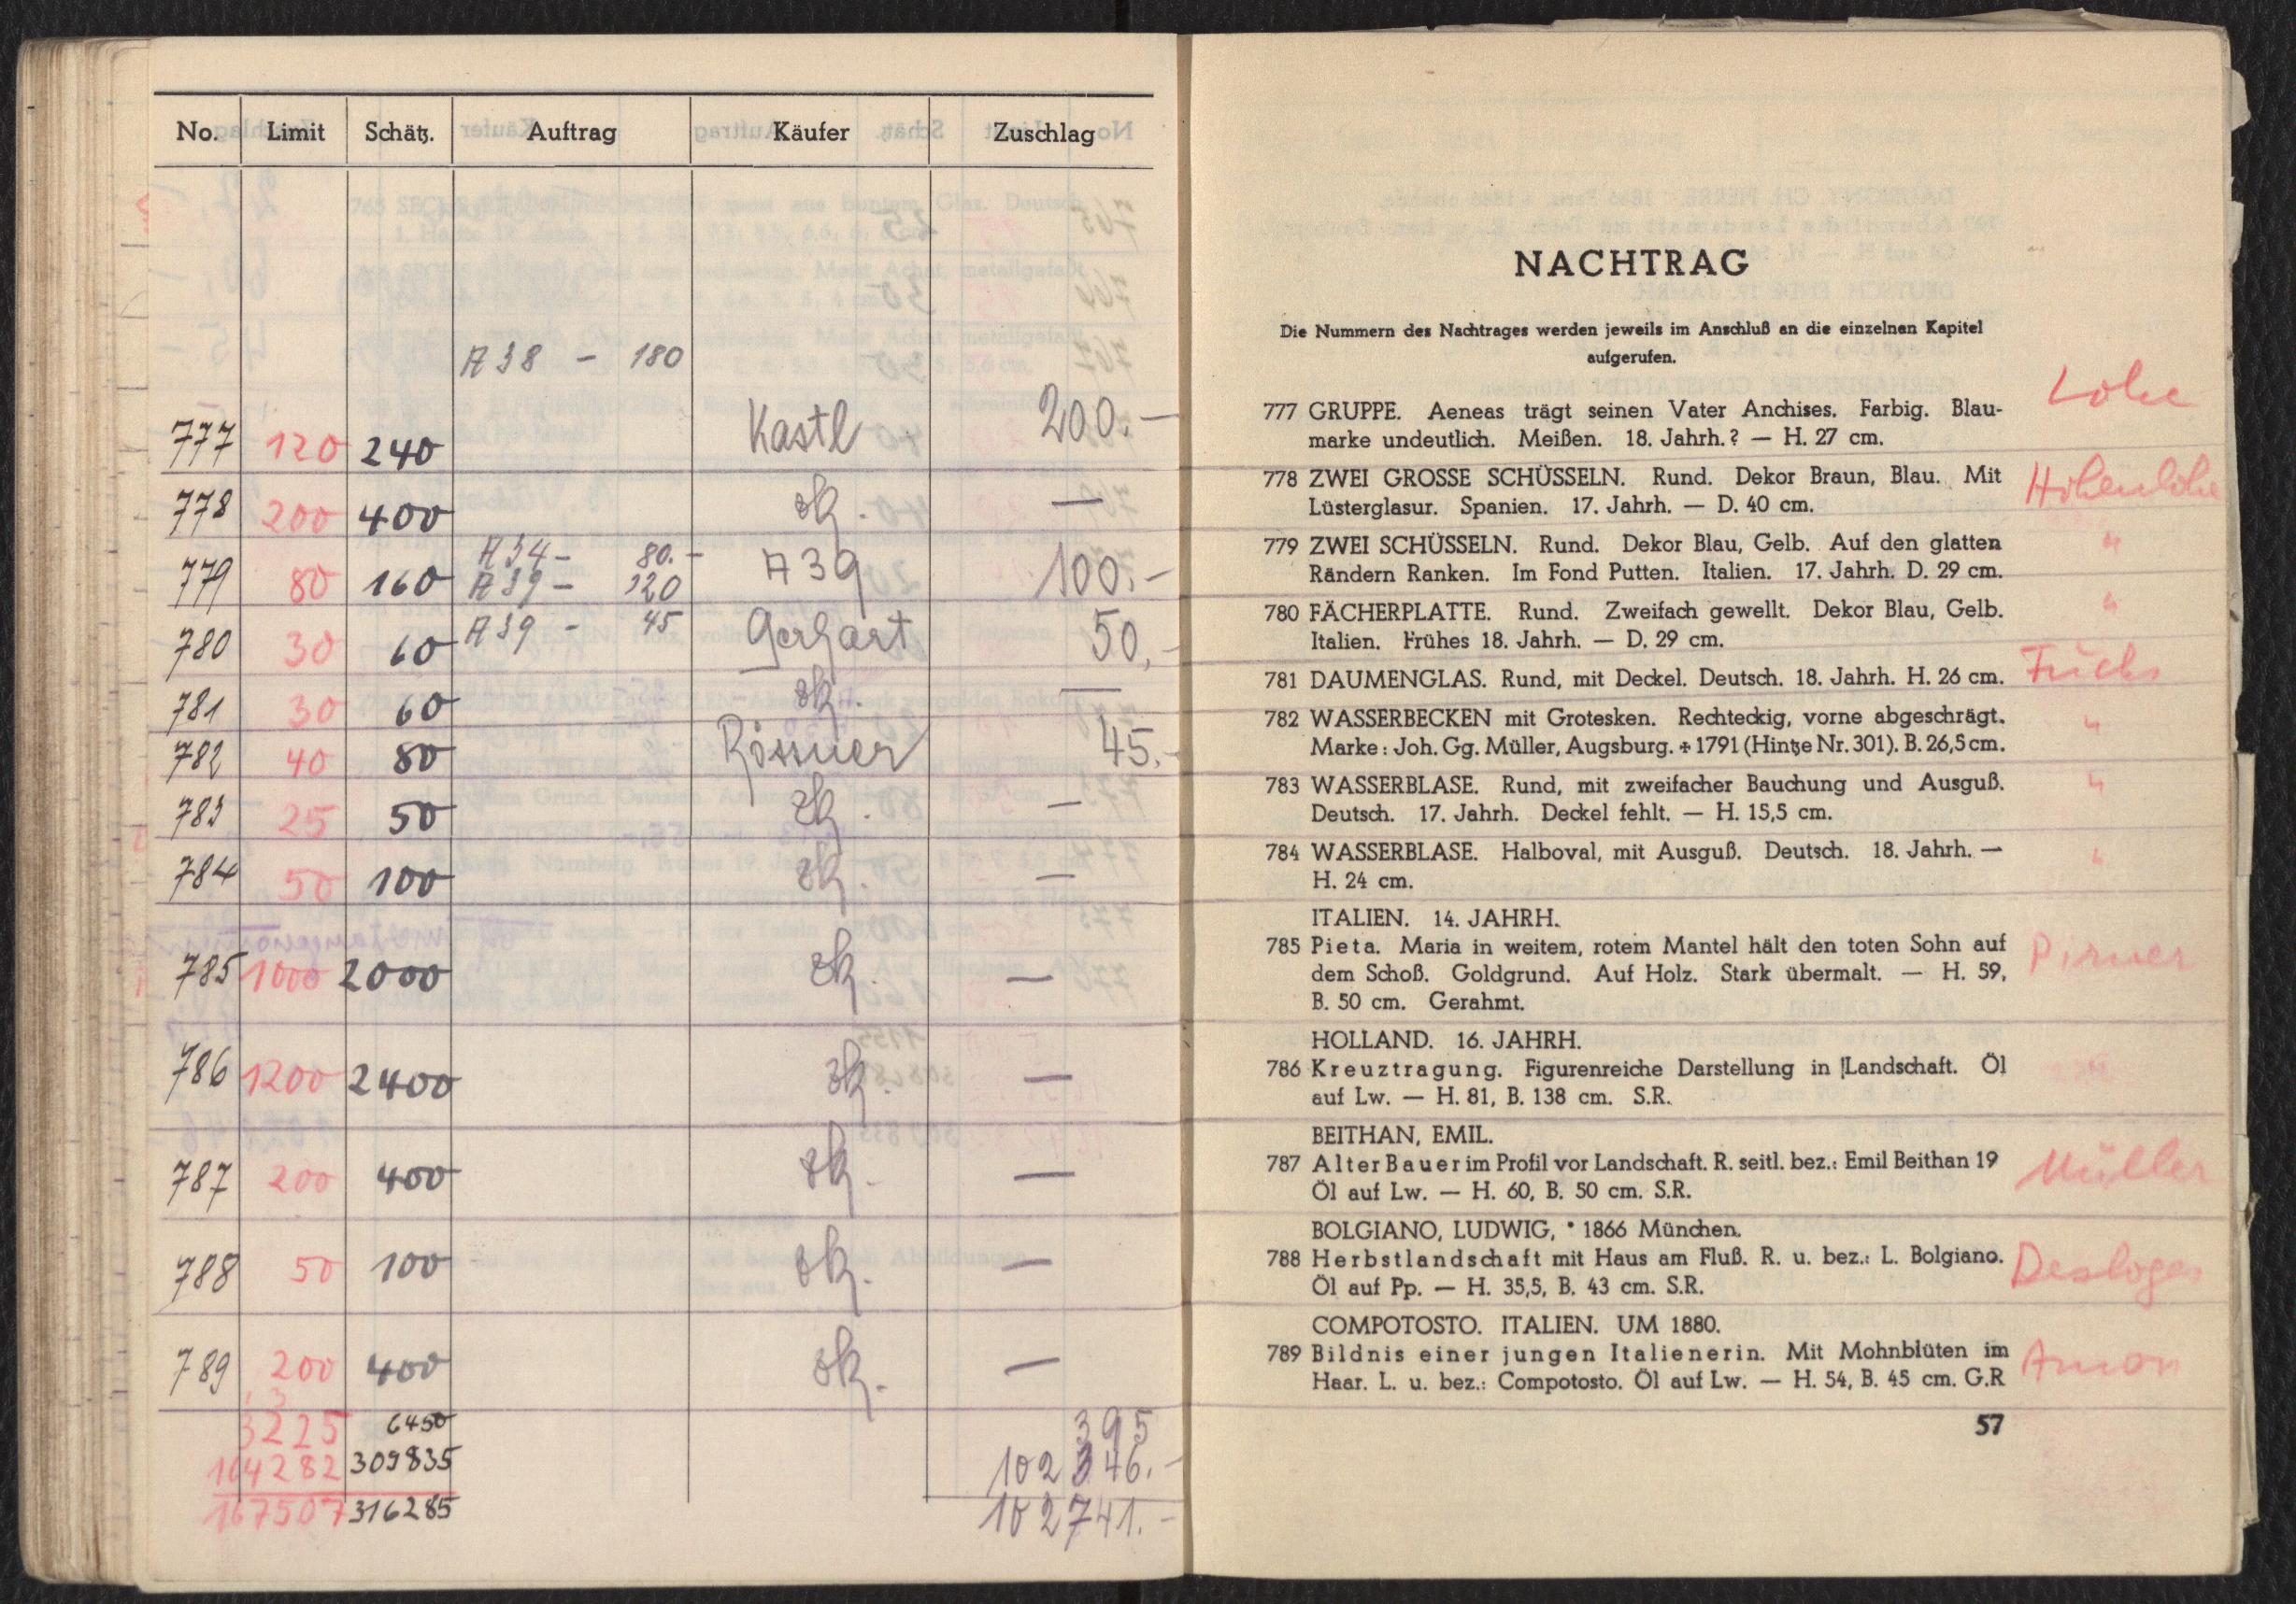 No. Limit Schätz. Auftrag Käufer Zuschlag
A 38 - 180
777 120 240 Kastl 200.-
778 200 400 zk. —
A 34 - 80.-
779 80 160 A 39 - 120 A 39 100.-
780 30 60 A 39 - 45 Gerhart 50,-
781 30 60 zk. —
782 40 80 Rössner 45.-
783 25 50 zk. —
784 50 100 zk. —
785 1000 2000 zk. —
786 1200 2400 zk. —
787 200 400 zk. —
788 50 100 zk. —
789 200 400 zk. —
3225 6450 395
164282 309835 102346.-
167507 316285 102741.-
NACHTRAG
Die Nummern des Nachtrages werden jeweils im Anschluß an die einzelnen Kapitel
aufgerufen.
777 GRUPPE. Aeneas trägt seinen Vater Anchises. Farbig. Blau- Lohe
marke undeutlich. Meißen. 18. Jahrh.? — H. 27 cm.
778 ZWEI GROSSE SCHÜSSELN. Rund. Dekor Braun, Blau. Mit Hohenlohe
Lüsterglasur. Spanien. 17. Jahrh. — D. 40 cm.
779 ZWEI SCHÜSSELN. Rund. Dekor Blau, Gelb. Auf den glatten "
Rändern Ranken. Im Fond Putten. Italien. 17. Jahrh. D. 29 cm.
780 FÄCHERPLATTE. Rund. Zweifach gewellt. Dekor Blau, Gelb. "
Italien. Frühes 18. Jahrh. — D. 29 cm.
781 DAUMENGLAS. Rund, mit Deckel. Deutsch. 18. Jahrh. H. 26 cm. Fuchs
782 WASSERBECKEN mit Grotesken. Rechteckig, vorne abgeschrägt. "
Marke: Joh. Gg. Müller, Augsburg. + 1791 (Hintze Nr. 301). B. 26,5 cm.
783 WASSERBLASE. Rund, mit zweifacher Bauchung und Ausguß. "
Deutsch. 17. Jahrh. Deckel fehlt. — H. 15,5 cm.
784 WASSERBLASE. Halboval, mit Ausguß. Deutsch. 18. Jahrh. — "
H. 24 cm.
ITALIEN. 14. JAHRH.
785 Pieta. Maria in weitem, rotem Mantel hält den toten Sohn auf Pirner
dem Schoß. Goldgrund. Auf Holz. Stark übermalt. — H. 59,
B. 50 cm. Gerahmt.
HOLLAND. 16. JAHRH.
786 Kreuztragung. Figurenreiche Darstellung in Landschaft. Öl
auf Lw. — H. 81, B. 138 cm. S.R.
BEITHAN, EMIL.
787 Alter Bauer im Profil vor Landschaft. R. seitl. bez.: Emil Beithan 19 Müller
Öl auf Lw. — H. 60, B. 50 cm. S.R.
BOLGIANO, LUDWIG, * 1866 München.
788 Herbstlandschaft mit Haus am Fluß. R. u. bez.: L. Bolgiano. Desloges
Öl auf Pp. — H. 35,5, B. 43 cm. S.R.
COMPOTOSTO. ITALIEN. UM 1880.
789 Bildnis einer jungen Italienerin. Mit Mohnblüten im Amon
Haar. L. u. bez.: Compotosto. Öl auf Lw. — H. 54, B. 45 cm. G.R
57